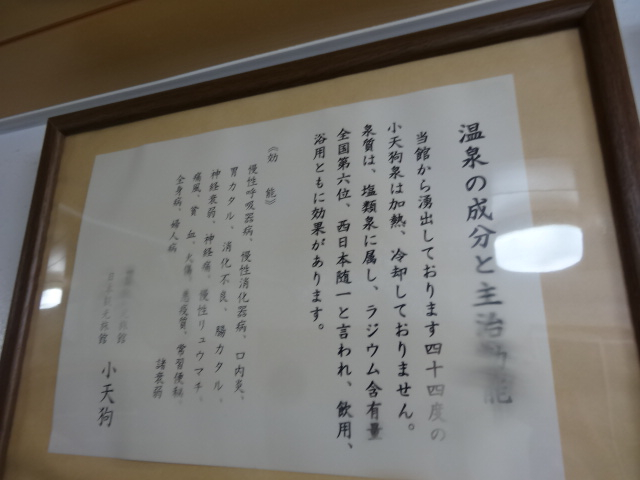 温泉の成分と主治効能
当館から湧出しております四十四度の
小天狗泉は加熱、冷却しておりません。
泉質は、塩類泉に属し、ラジウム含有量
全国第六位、西日本随一と言われ、飲用、
浴用ともに効果があります。
《効能》
慢性呼吸器病、慢性消化器病、口内炎、
胃カタル、消化不良、腸カタル、
神経衰弱、神経痛、慢性リュウマチ、
痛風、貧血、火傷、悪疫質、常習便秘、
諸衰弱
全身病、婦人病
観光旅館
日本観光旅館 小天狗